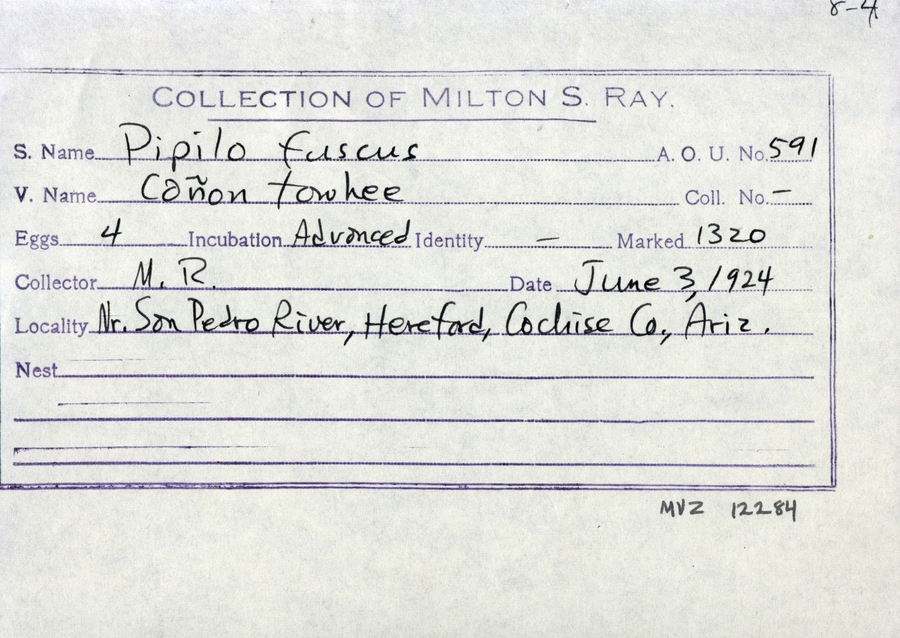 8-4
COLLECTION OF MILTON S. RAY.
S. Name Pipilo fuscus A. O. U. No. 591
V. Name Cañon towhee Coll. No. –
Eggs 4 Incubation Advanced Identity – Marked 1320
Collector M. R. Date June 3, 1924
Locality Nr. San Pedro River, Hereford, Cochise Co., Ariz.
Nest
MVZ 12284